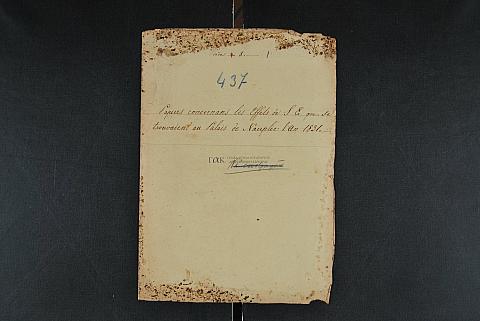 437
Papiers concernans les Effets de S. E. qui se
trouvaient au Palais de Nauplie l'An 1831.
ΓΑΚ